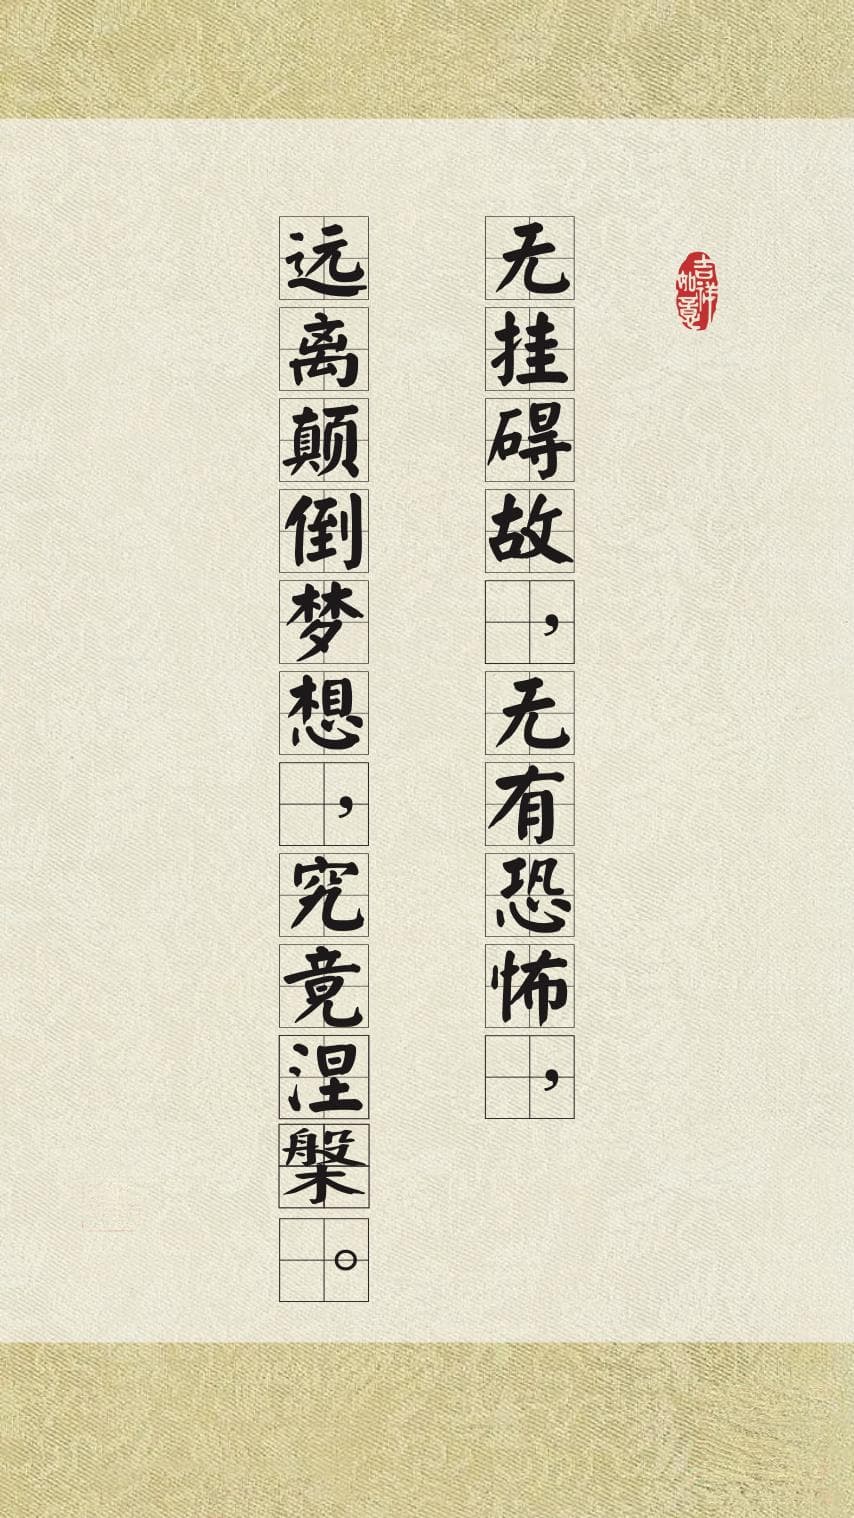 吉祥如意
无挂碍故，无有恐怖，
远离颠倒梦想，究竟涅槃。